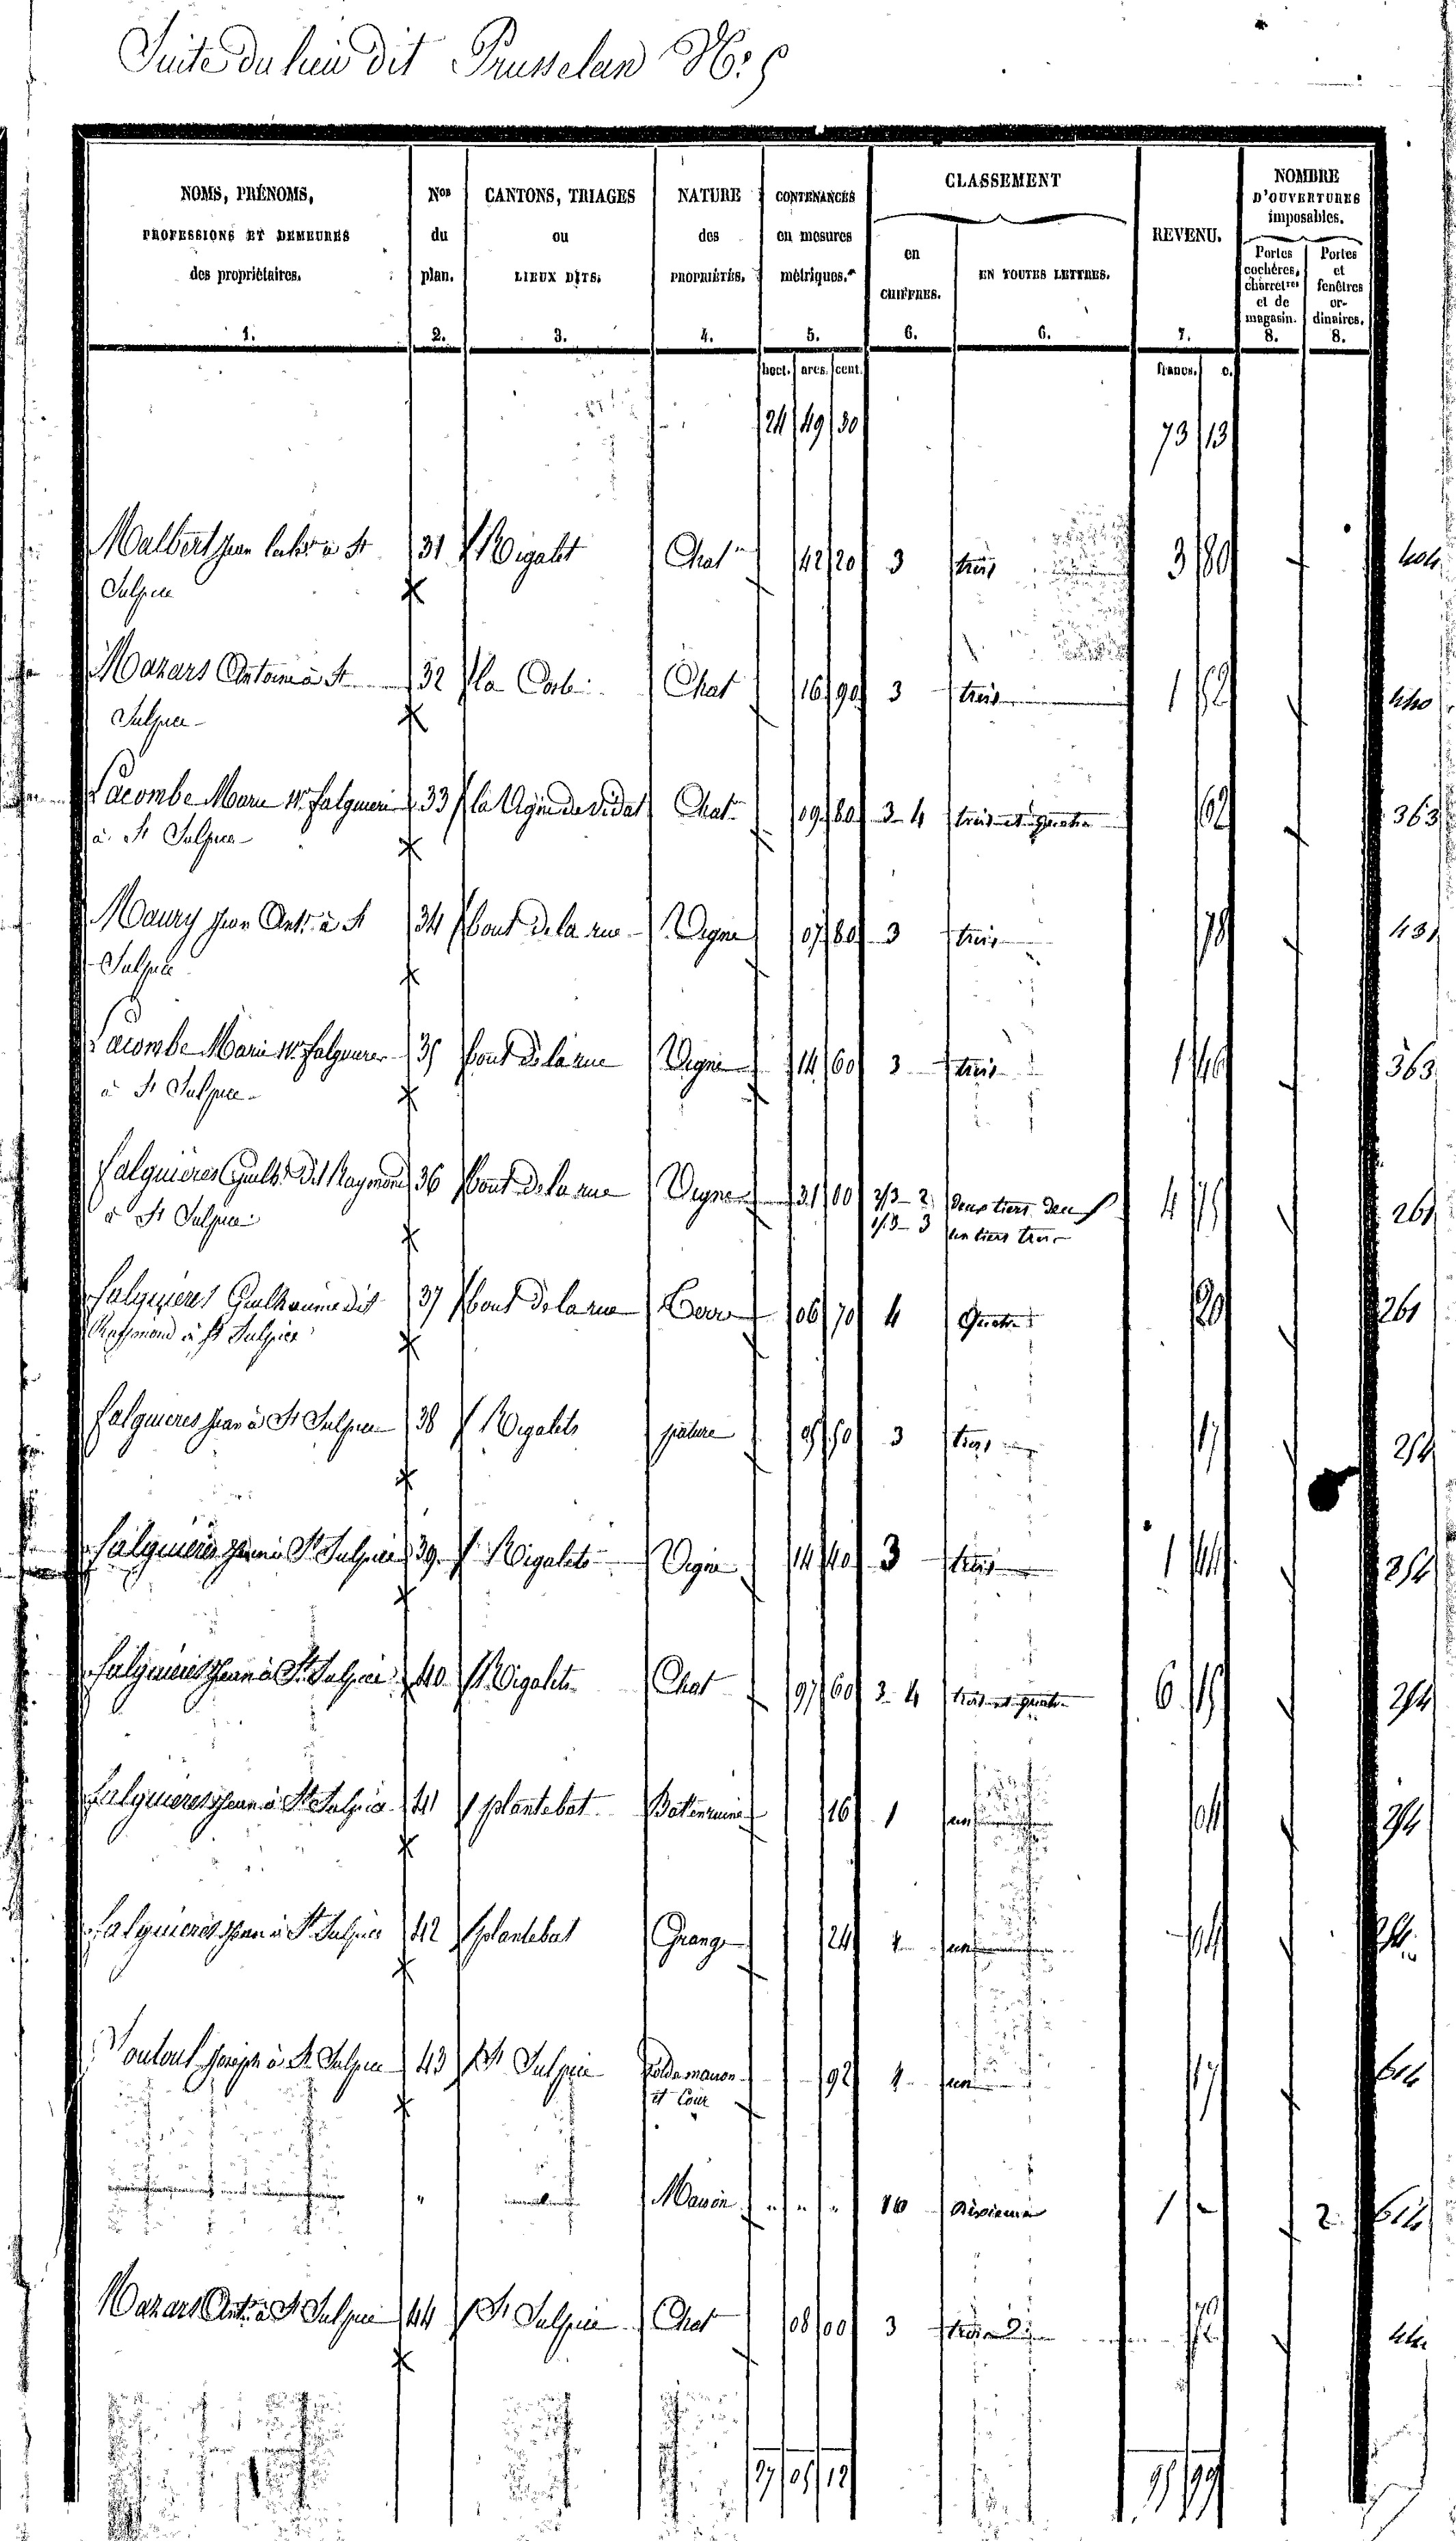 Suite du lieu dit Prusselan N: 5
NOMS, PRÉNOMS, PROFESSIONS ET DEMEURES des propriétaires. 1.
Nos du plan. 2.
CANTONS, TRIAGES ou LIEUX DITS. 3.
NATURE des PROPRIÉTÉS. 4.
CONTENANCES en mesures métriques. 5.
CLASSEMENT
en CHIFFRES. 6.
EN TOUTES LETTRES. 6.
REVENU. 7.
NOMBRE D'OUVERTURES imposables.
Portes cochères, charretres et de magasin. 8.
Portes et fenêtres or- dinaires. 8.
hect. ares. cent. francs. c.
24 49 30 73 13
Malbert Jean à St 31 Rigalet Chat 42 20 3 trois 3 80 404
Sulpice
Mazars Antoine à St 32 la Chat 16 90 3 trois 1 52 440
Sulpice
Lacombe Marie Falguieres 33 la Vigne de Vidal Chat 09 80 3-4 trois et quatre 62 363
à St Sulpice
Maury Jean Ant. à St 34 bout de la rue Vigne 07 80 3 trois 78 431
Sulpice
Lacombe Marie Falguieres 35 bout de la rue Vigne 14 60 3 trois 1 46 363
à St Sulpice
Falguieres Guilh. dit Raymond 36 bout de la rue Vigne 31 00 2/3-2 Deux tiers deux 4 75 261
à St Sulpice 1/3-3 un tiers trois
Falguieres Guilhaume dit 37 bout de la rue 06 70 4 Quatre 20 261
Raymond à St Sulpice
Falguieres Jean à St Sulpice 38 Rigalets pâture 05 50 3 trois 17 254
Falguieres Jean à St Sulpice 39 Rigalets Vigne 14 40 3 trois 1 44 254
Falguieres Jean à St Sulpice 40 Rigalets Chat 97 60 3-4 trois et quatre 6 15 254
Falguieres Jean à St Sulpice 41 plantebat Bat en ruine 16 1 un 04 254
Falguieres Jean à St Sulpice 42 plantebat Grange 24 1 un 04 254
Joseph à St Sulpice 43 St Sulpice Sol de maison 92 1 un 17 614
et Cour
" Maison " " " 10 Dixieme 1 - 2 614
Mazars Ant. à St Sulpice 44 St Sulpice Chat 08 00 3 trois 72
27 05 12 95 99